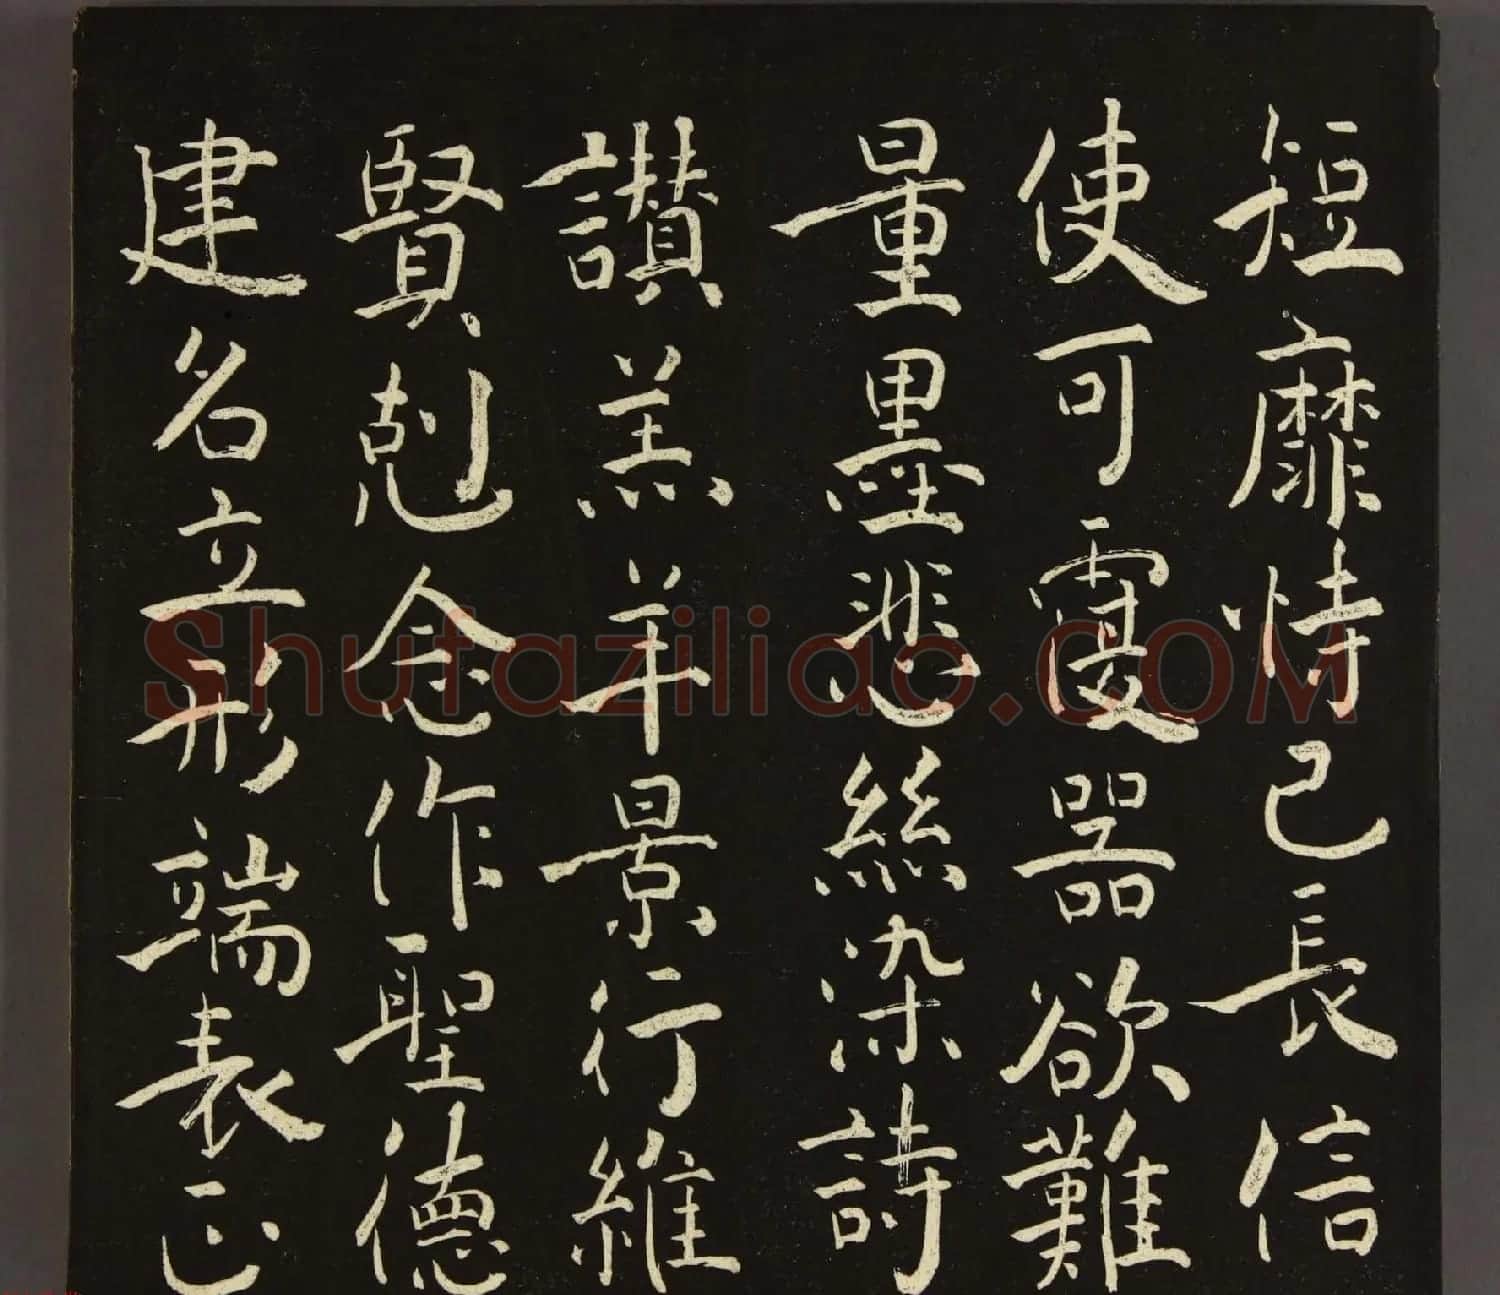 短靡恃己長信
使可覆器欲難
量墨悲絲染詩
讃羔羊景行維
賢剋念作聖德
建名立形端表正
Shufaziliao.COM